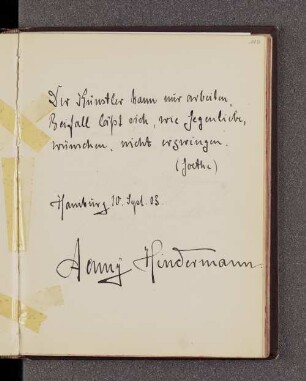 Der Künstler kann nur arbeiten,
Beifall läßt sich, wie Gegenliebe,
wünschen, nicht erzwingen.
(Goethe)
Hamburg 10. Sept. 03.
Hindermann.